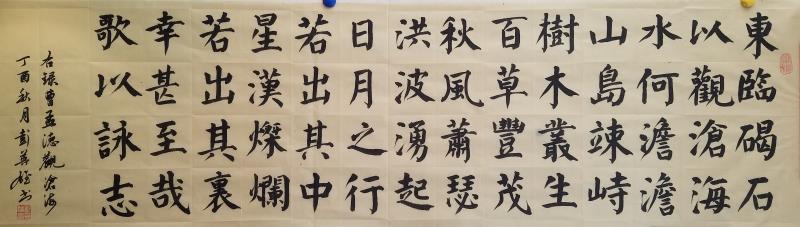 東臨碣石
以觀滄海
水何澹澹
山島竦峙
樹木叢生
百草豐茂
秋風蕭瑟
洪波湧起
日月之行
若出其中
星漢燦爛
若出其裏
幸甚至哉
歌以詠志
右錄曹孟德觀滄海
丁酉秋月彭英雄书